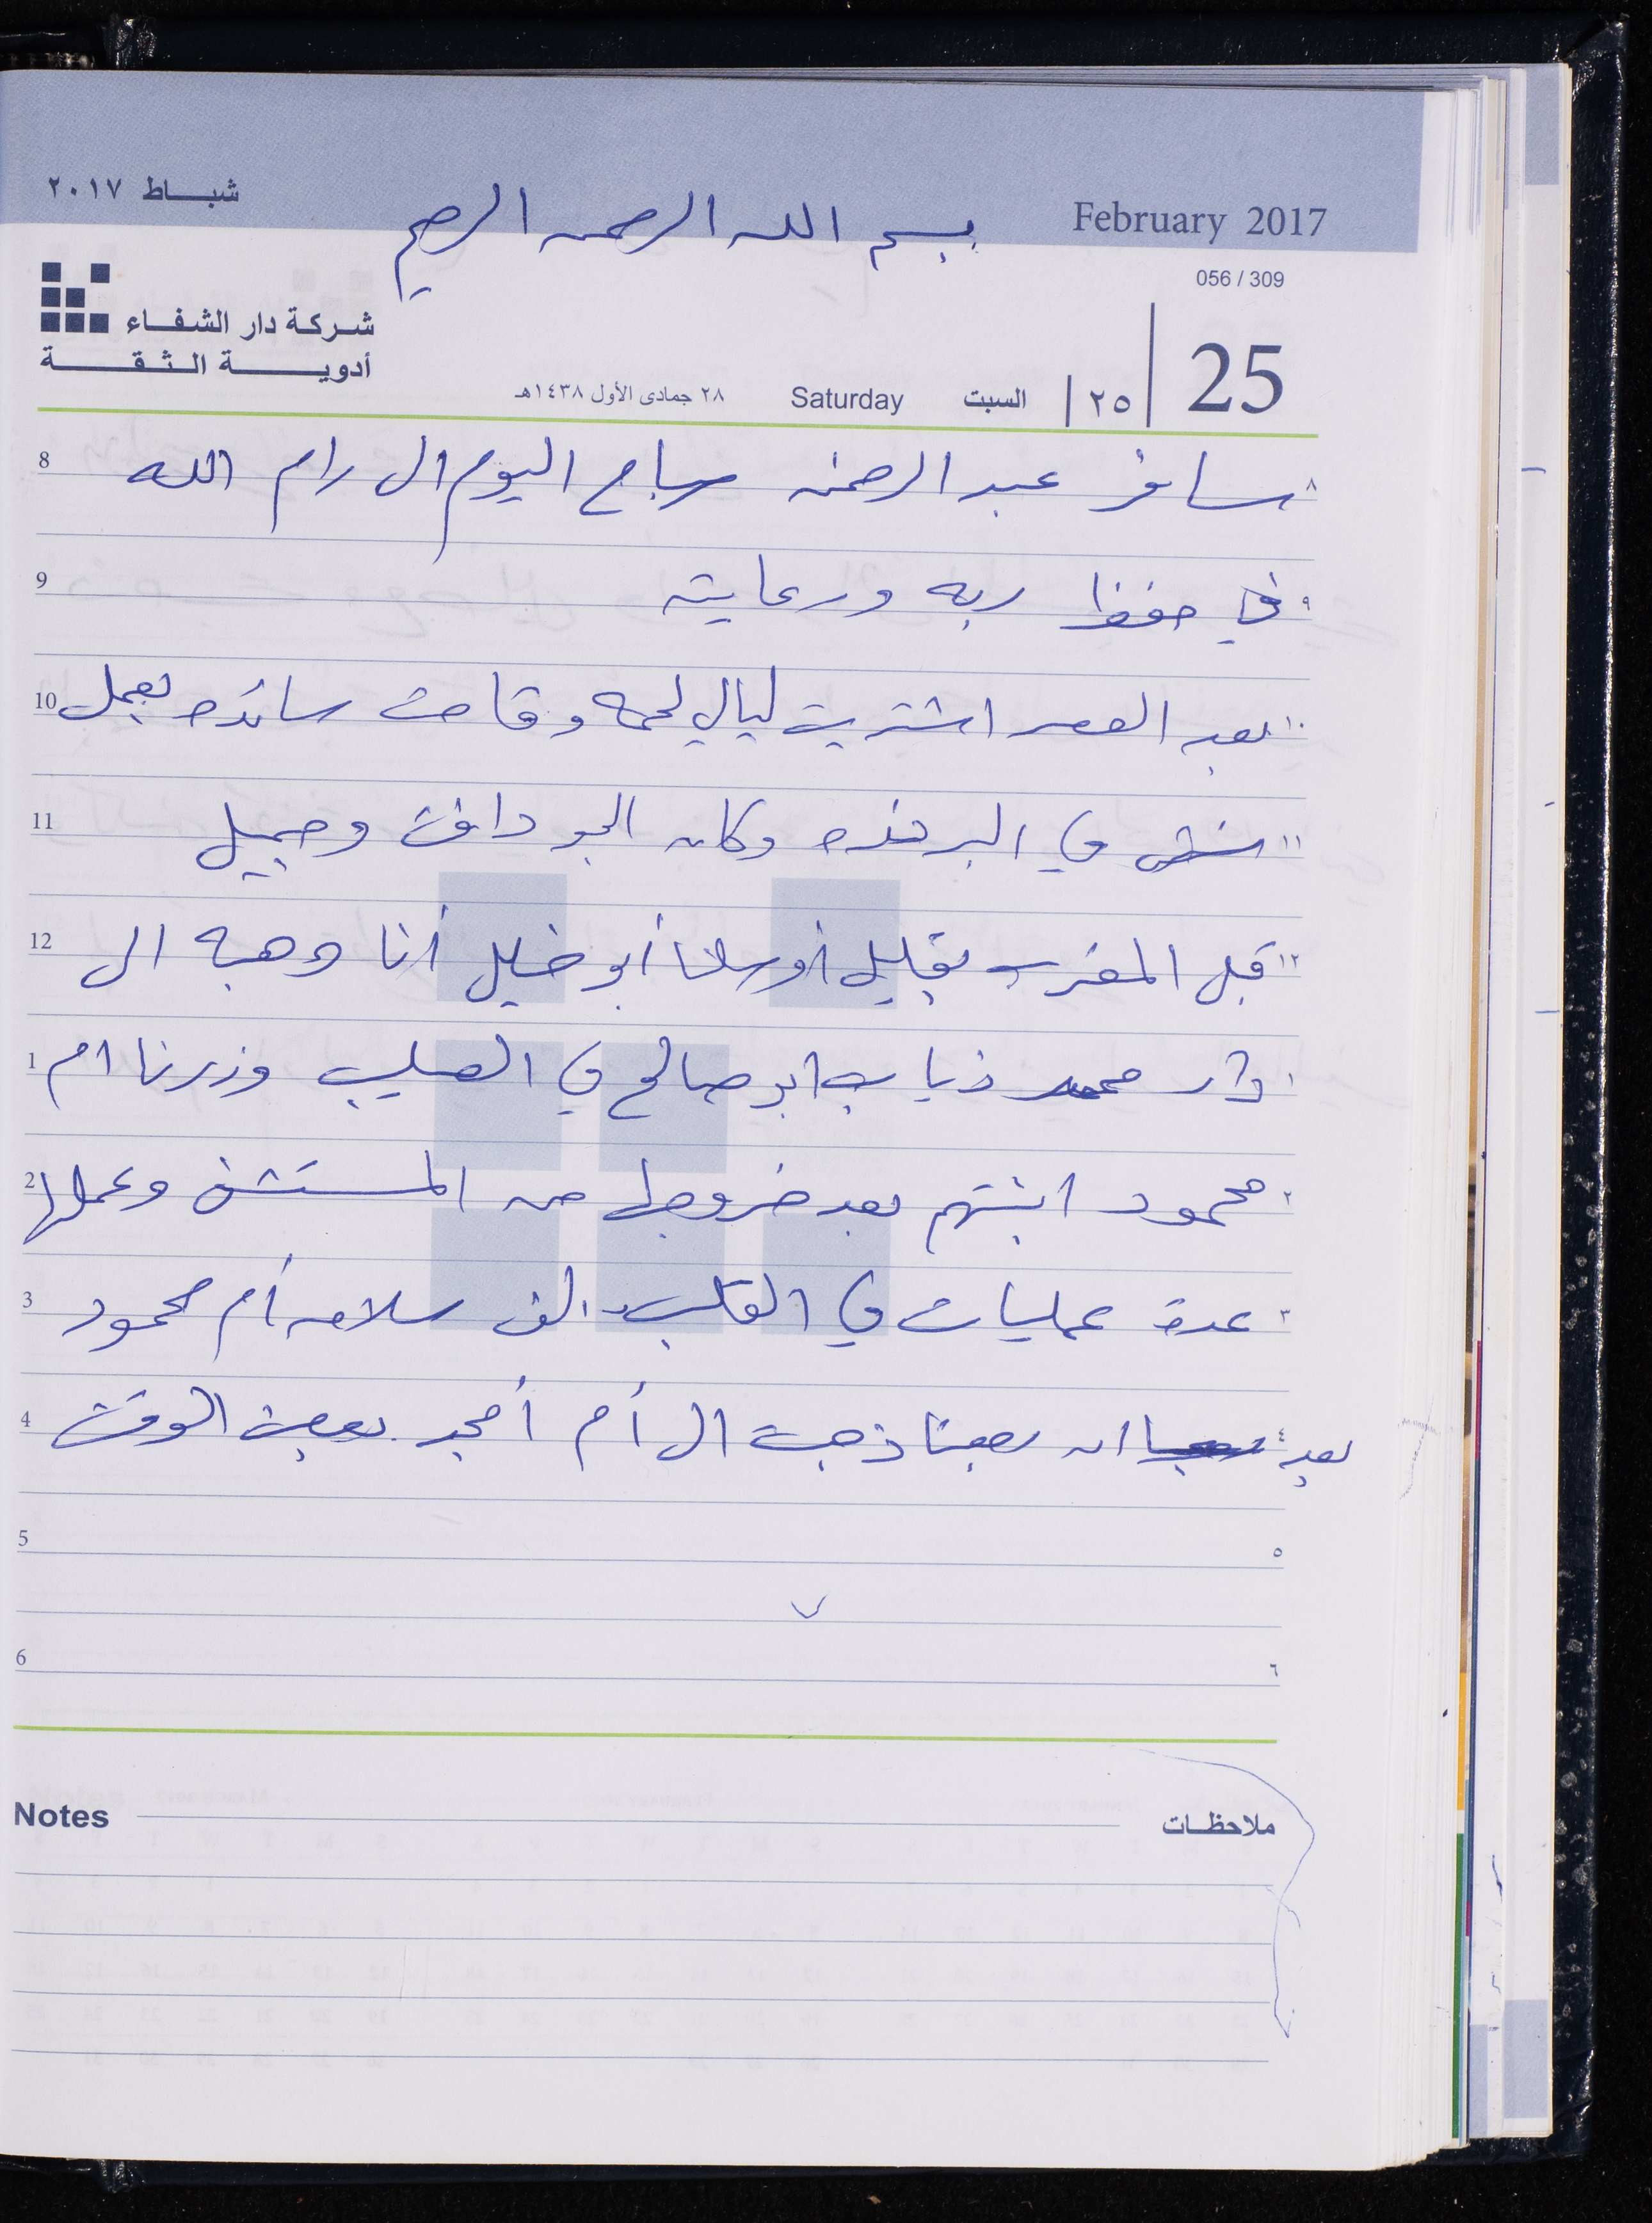 شباط ٢٠١٧
February 2017
بسم الله الرحمن الرحيم
056 / 309
شركة دار الشفاء
أدوية الثقة
25
٢٥
السبت
Saturday
٢٨ جمادى الأول ١٤٣٨هـ
8 سافر عبد الرحمن صباح اليوم الى رام الله ٨
9 في حفظ ربه ورعايته ٩
10 بعد العصر اشتريت ليالي لحمه وقامت سائده بعمل ١٠
11 في البرنده وكان الجو دافئ وجميل ١١
12 قبل المغرب بقليل أوصلنا أبو خليل أنا وهبه الى ١٢
1 دار محمد ذياب ابو صالح في الصليب وزرنا ام ١
2 محمود ابنتهم بعد خروجها من المستشفى وعملها ٢
3 عدة عمليات في القلب الف سلامه أم محمود ٣
4 بعد ان رجعنا ذهبت الى أم أمجد بعض الوقت ٤
5 ٥
6 ٦
Notes ملاحظات